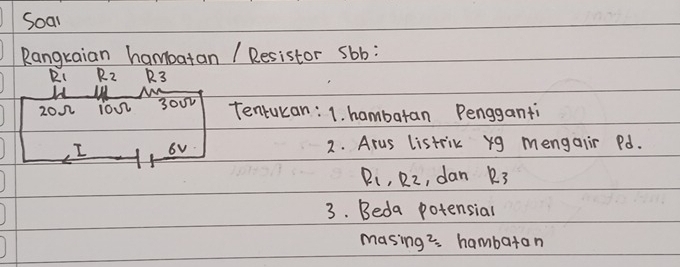 Soal
Rangkaian hambatan / Resistor sbb:
R1 R2 R3
20Ω 10Ω 30Ω
I 6V
Tentukan: 1. hambatan Pengganti
2. Arus listrik yg mengalir Pd.
R1, R2, dan R3
3. Beda potensial
masing2= hambatan